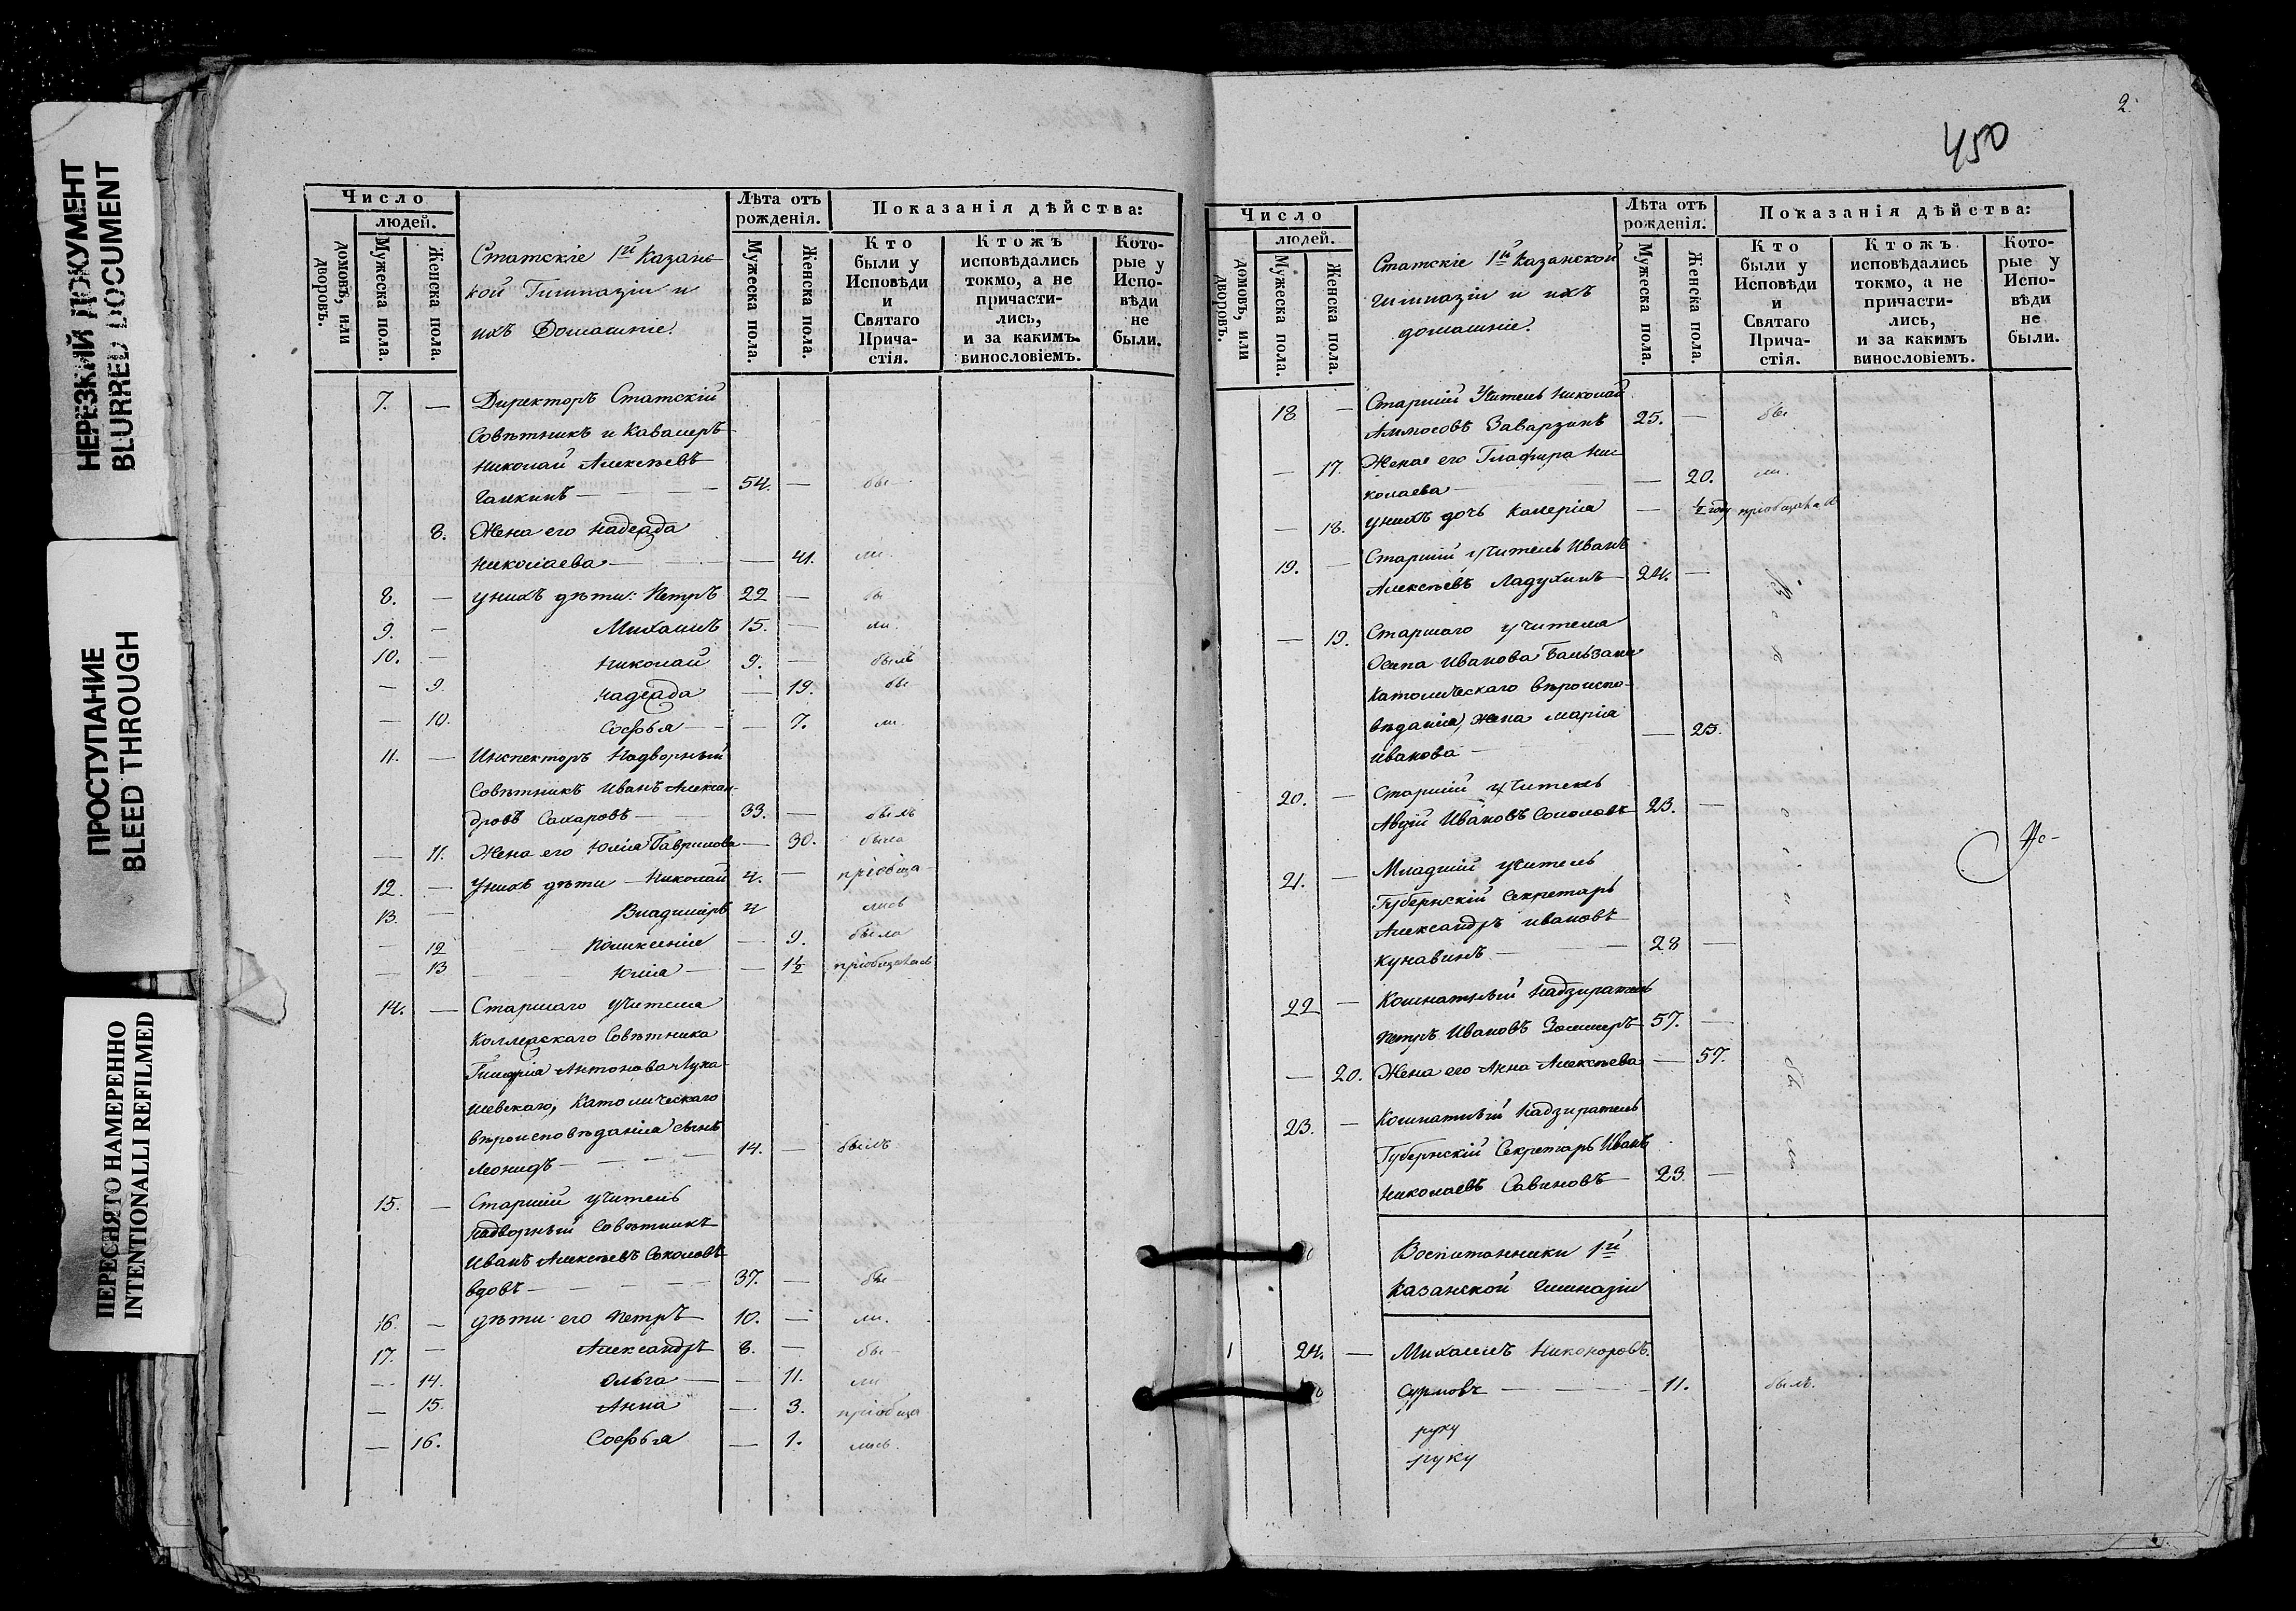 НЕРЕЗКИЙ ДОКУМЕНТ
BLURRED DOCUMENT
ПРОСТУПАНИЕ
BLEED THROUGH
ПЕРЕСНЯТО НАМЕРЕННО
INTENTIONALLI REFILMED
Число
людей.
домовъ, или дворовъ.
Мужеска пола.
Женска пола.
Статскіе 1й Казанс-
кой Гимназіи и
ихъ Домашніе.
Лѣта отъ рожденія.
Мужеска пола.
Женска пола.
Показанія дѣйства:
Кто были у Исповѣди и Святаго Прича-стія.
Ктожъ исповѣдались токмо, а не причасти-лись, и за какимъ винословіемъ.
Кото-рые у Испо-вѣди не были.
7. — Директоръ Статскій
Совѣтникъ и Кавалеръ
Николай Алексѣевъ
Галкинъ — 54. — бы-
8. Жена его Надежда
Николаева — — 41. ли.
8. — у нихъ дѣти: Петръ 22 — бы
9. — Михаилъ 15. — ли.
10. — Николай 9. — былъ
— 9. Надежда — 19. бы
— 10. Софья — — 7. ли.
11. — Инспекторъ Надворный
Совѣтникъ Иванъ Алексан-
дровъ Сахаровъ — 33. — былъ
— 11. Жена его Юлія Гаврилова — 30. была
12. — У нихъ дѣти — Николай 4. — пріобща-
13. — Владиміръ 4 лись
— 12 — — 9. была
— 13 Юлія — — 1½ пріобщалась
14. — Старшаго Учителя
Коллежскаго Совѣтника
Антонова Лука-
шевскаго, Католическаго
вѣроисповѣданія сынъ
Леонидъ — 14. — былъ
15. — Старшій Учитель
Надворный Совѣтникъ
Иванъ Алексѣевъ Соколовъ
вдовъ — 37. — бы
16. — дѣти его Петръ 10. — ли.
17. — Александръ 8. — бы-
— 14. Ольга — — 11. ли
— 15. Анна — 3. пріобща
— 16. Софья — 1. лись.
2.
450
Число
людей.
домовъ, или дворовъ.
Мужеска пола.
Женска пола.
Статскіе 1й Казанской
Гимназіи и ихъ
домашніе.
Лѣта отъ рожденія.
Мужеска пола.
Женска пола.
Показанія дѣйства:
Кто были у Исповѣди и Святаго Прича-стія.
Ктожъ исповѣдались токмо, а не причасти-лись, и за какимъ винословіемъ.
Кото-рые у Испо-вѣди не были.
18. — Старшій Учитель Николай
Аммосовъ Заварзинъ 25. — бы
— 17. Жена его Глафира Ни-
колаева — — 20. ли.
— 18. у нихъ дочь Калерія — ½ году пріобщалась
19. — Старшій учитель Иванъ
Алексѣевъ Ладухинъ 24. —
— 19. Старшаго учителя
Осипа Иванова
Католическаго вѣроиспо-
вѣданія, жена Марія
Иванова — — 25.
20. — Старшій учитель
Авдій Ивановъ Соколовъ 23. —
21. — Младшій учитель
Губернскій Секретарь
Александръ Ивановъ
Кунавинъ — 28 —
22 — Комнатный Надзиратель
Петръ Ивановъ 57. —
— 20. Жена его Анна Алексѣева — 57.
бы
23. — Комнатный Надзиратель
Губернскій Секретарь Иванъ
Николаевъ Савиновъ 23. —
ли
Воспитанники 1й
Казанской Гимназіи
1 24. — Михаилъ Никоноровъ
— 11. былъ.
руку
руку